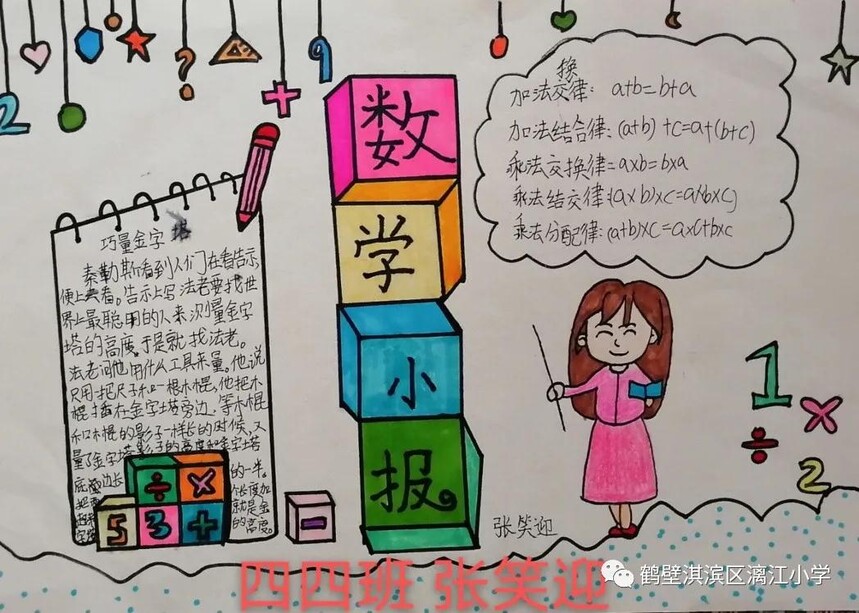 数
学
小
报
加法交换律：a+b=b+a
加法结合律：(a+b)+c=a+(b+c)
乘法交换律=a×b=b×a
乘法结交律：(a×b)×c=a(b×c)
乘法分配律：(a+b)×c=a×c+b×c
巧量金字塔
泰勒斯看到人们在看告示，
便上去看。告示上写法老要找世
界上最聪明的人来测量金字
塔的高度。于是就找法老。
法老问他用什么工具来量。他说
只用一把尺子和一根木棍，他把木
棍插在金字塔旁边，等木棍
和木棍的影子一样长的时候，又
量了金字塔影子的高度和金字塔
底边长的一半。
长度加
就是金
的高度。
2
?
9
+
÷
×
5
3
+
-
1
÷
×
2
张笑迎
四四班 张笑迎
鹤壁淇滨区漓江小学